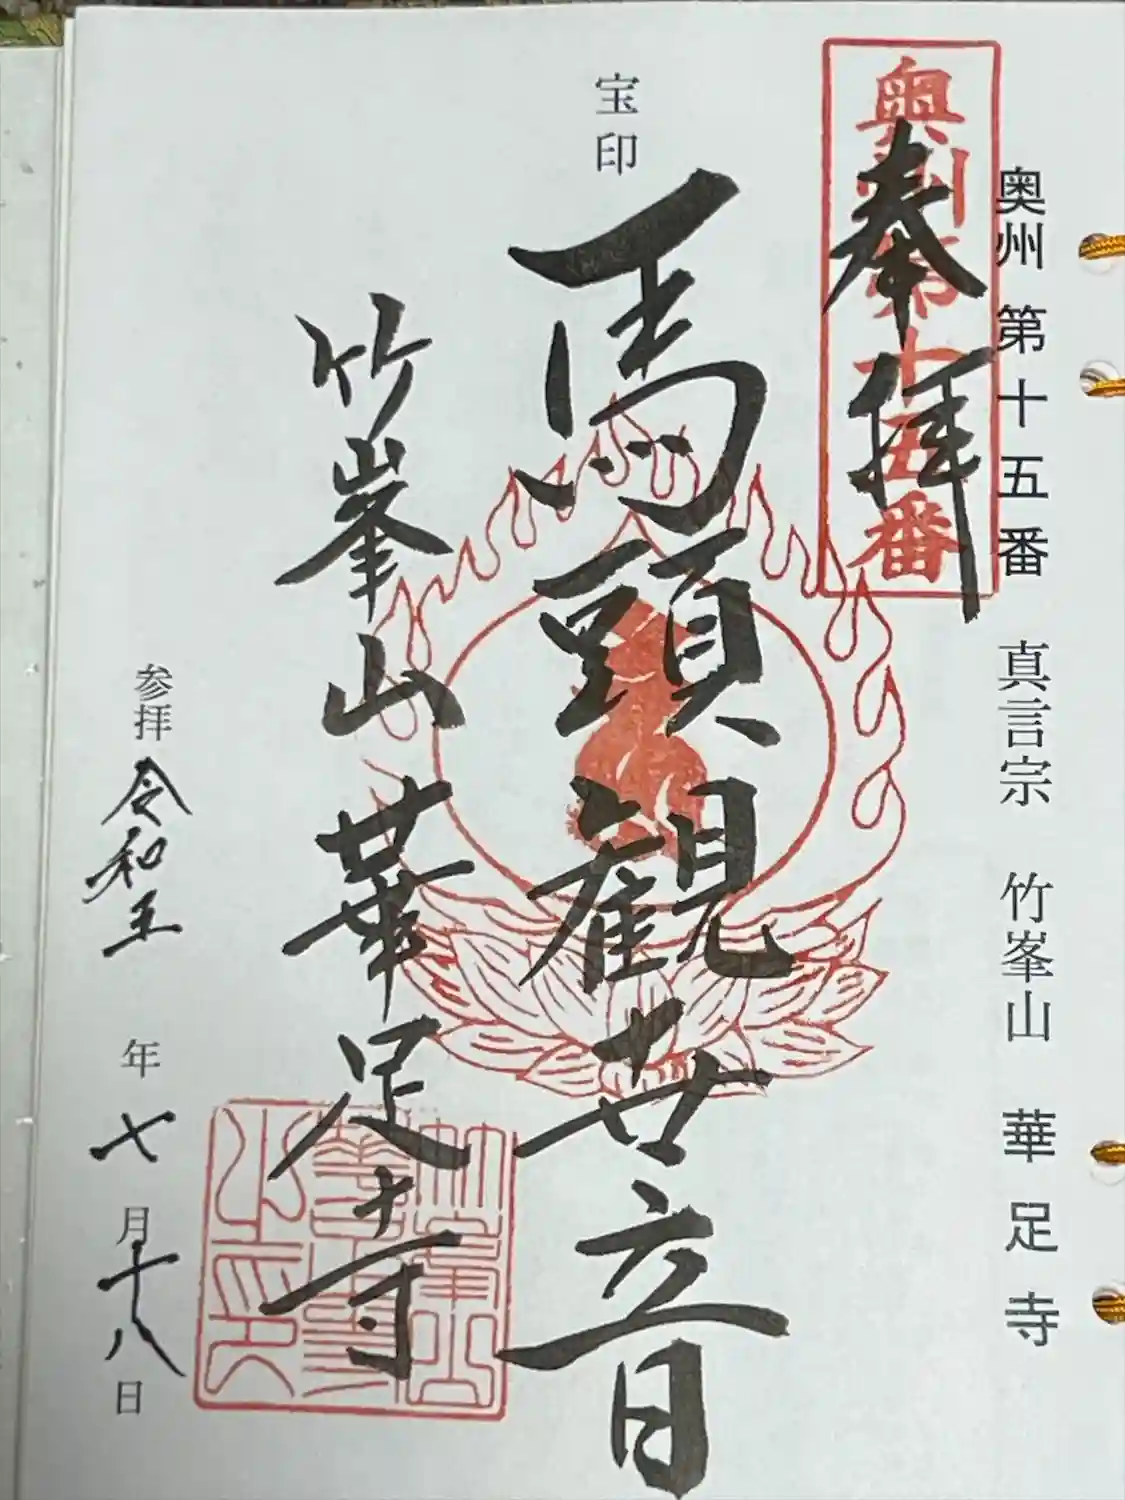 奥州第十五番 真言宗 竹峯山 華足寺
奥州第十五番
奉拝
宝印
馬頭観世音
竹峯山 華足寺
参拝 令和五年七月十八日